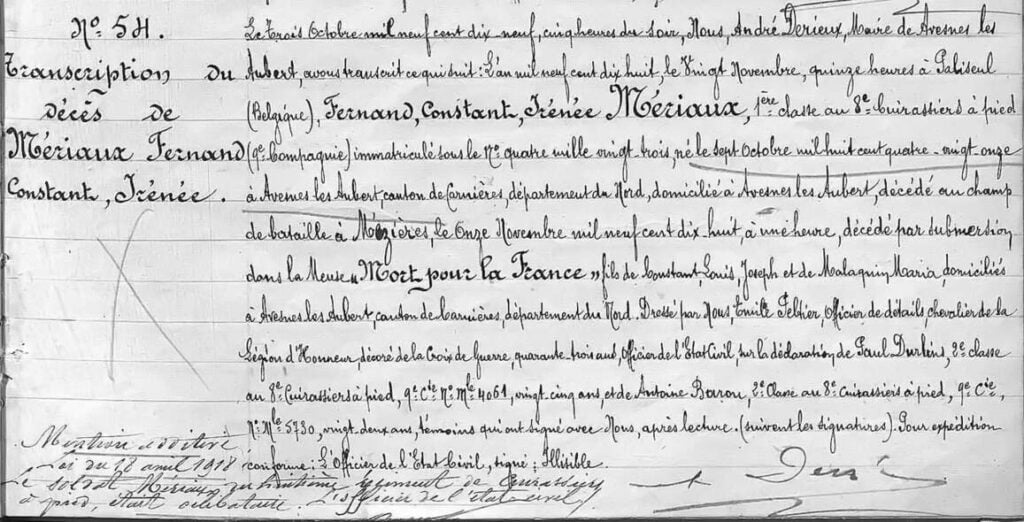 N° 54.
Transcription du
décès de
Mériaux Fernand
Constant, Irénée.
Le Trois Octobre mil neuf cent dix neuf, cinq heures du soir, Nous, André Derieux, Maire de Avesnes les
Aubert, avons transcrit ce qui suit: L'an mil neuf cent dix huit, le Vingt Novembre, quinze heures à Paliseul
(Belgique), Fernand, Constant, Irénée Mériaux, 1ère classe au 8e Cuirassiers à pied
(9e Compagnie) immatriculé sous le N° quatre mille vingt-trois né le sept Octobre mil huit cent quatre-vingt onze
à Avesnes les Aubert, canton de Carnières, département du Nord, domicilié à Avesnes les Aubert, décédé au champ
de bataille à Mézières, le Onze Novembre mil neuf cent dix-huit, à une heure, décédé par submersion
dans la Meuse "Mort pour la France" fils de Constant, Louis, Joseph et de Malaquin, Maria, domiciliés
à Avesnes les Aubert, canton de Carnières, département du Nord. Dressé par Nous, Emile Peltier, Officier de détails, chevalier de la
Légion d'Honneur, décoré de la Croix de Guerre, quarante trois ans, Officier de l'Etat Civil, sur la déclaration de Paul 2e classe
au 8e Cuirassiers à pied, 9e Cie N° Mle 4061, vingt cinq ans, et de Antoine Baron, 2e Classe au 8e Cuirassiers à pied, 9e Cie,
N° Mle 5730, vingt-deux ans, témoins qui ont signé avec Nous, après lecture. (suivent les signatures). Pour expédition
conforme: L'Officier de l'Etat Civil, signé: Illisible.
Mention additive
Loi du 18 avril 1918
Le soldat Mériaux, au huitième régiment de Cuirassiers
à pied, était célibataire. L'officier de l'état civil,